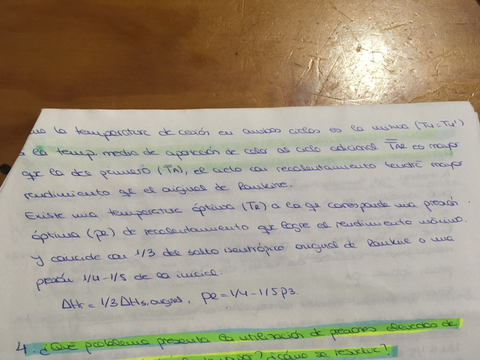 la temperatura de cesión en ambos ciclos es la misma (T4 = T4')
la temp. media de aportación de calor al ciclo adicional T̄AR es mayor
que la del primero (T̄A), el ciclo con recalentamiento tendrá mayor
rendimiento que el original de Rankine.
Existe una temperatura óptima (TR) a la que corresponde una presión
óptima (pR) de recalentamiento que logra el rendimiento máximo.
y coincide con 1/3 del salto isentrópico original de Rankine o una
presión 1/4 - 1/5 de la inicial.
ΔHr = 1/3 ΔHs, original, pR = 1/4 - 1/5 p3
4. ¿Qué problema presenta la utilización de presiones elevadas de
¿Cómo se resuelve?